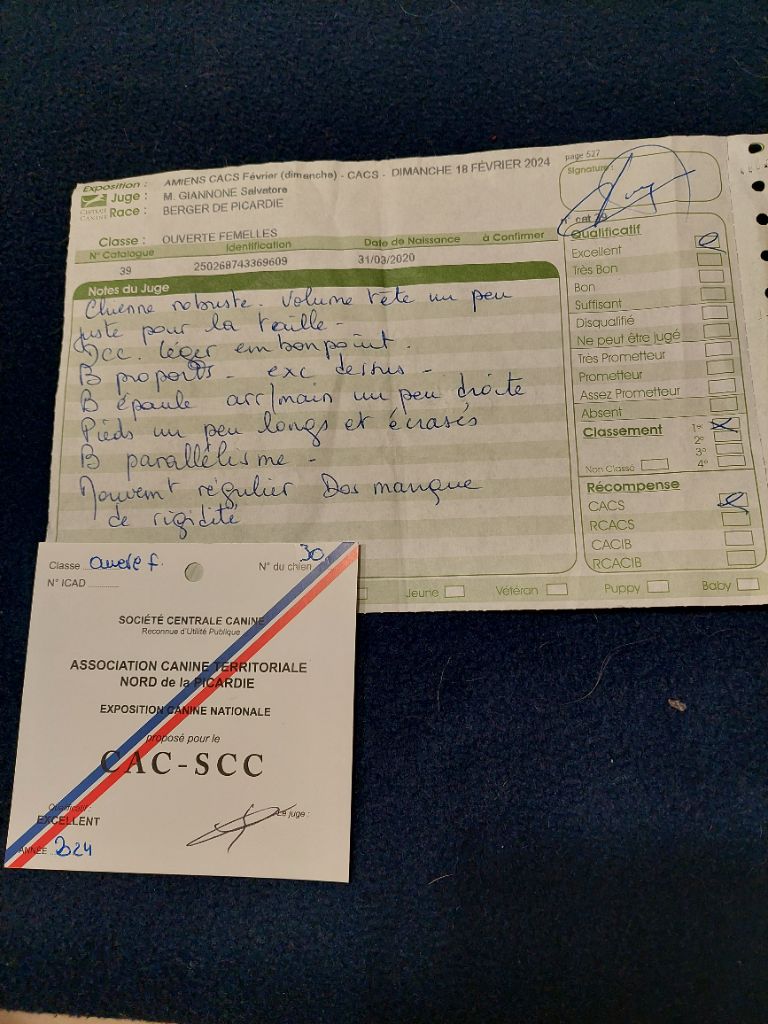 Exposition : AMIENS CACS Février (dimanche) - CACS - DIMANCHE 18 FÉVRIER 2024
page 527
Juge : M. GIANNONE Salvatore
Signature :
CENTRALE CANINE Race : BERGER DE PICARDIE
n° cat 39
Classe : OUVERTE FEMELLES
N° Catalogue Identification Date de Naissance à Confirmer
39 250268743369609 31/03/2020
Notes du Juge
Chienne robuste. Volume tête un peu
juste pour la taille -
Acc. léger embonpoint.
B proports - exc dessus -
B épaule arr/main un peu droite
Pieds un peu longs et écrasés
B parallélisme -
Mouvemt régulier Dos manque
de rigidité
Qualificatif
Excellent
Très Bon
Bon
Suffisant
Disqualifié
Ne peut être jugé
Très Prometteur
Prometteur
Assez Prometteur
Absent
Classement 1er
2°
3°
Non Classé 4°
Récompense
CACS
RCACS
CACIB
RCACIB
Jeune Vétéran Puppy Baby
Classe ouverte f. N° du chien 30
N° ICAD
SOCIÉTÉ CENTRALE CANINE
Reconnue d'Utilité Publique
ASSOCIATION CANINE TERRITORIALE
NORD de la PICARDIE
EXPOSITION CANINE NATIONALE
proposé pour le
CAC-SCC
Qualificatif :
EXCELLENT
Le juge :
ANNÉE 2024